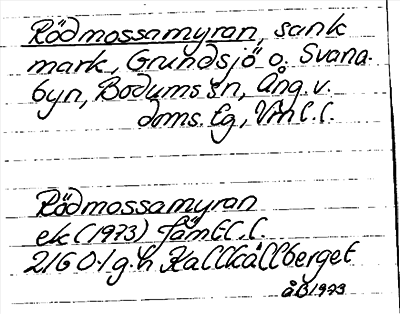 Rödmossamyran, sank
mark, Grundsjö o. Svana-
byn, Bodums sn, Ång. v.
doms. lg, Vml. l.
Rödmossamyran
ek (1973) Jämtl. l.
21G 0-1 g-h Kallkällberget
åB 1973